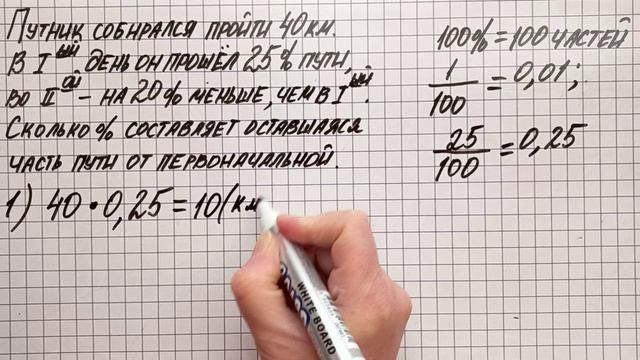 Путник собирался пройти 40 км.
В I ый день он прошёл 25% пути,
во II ой – на 20% меньше, чем в I ый.
Сколько % составляет оставшаяся
часть пути от первоначальной.
1) 40 • 0,25 = 10 (км
100% = 100 частей
1/100 = 0,01;
25/100 = 0,25
WHITE BOARD